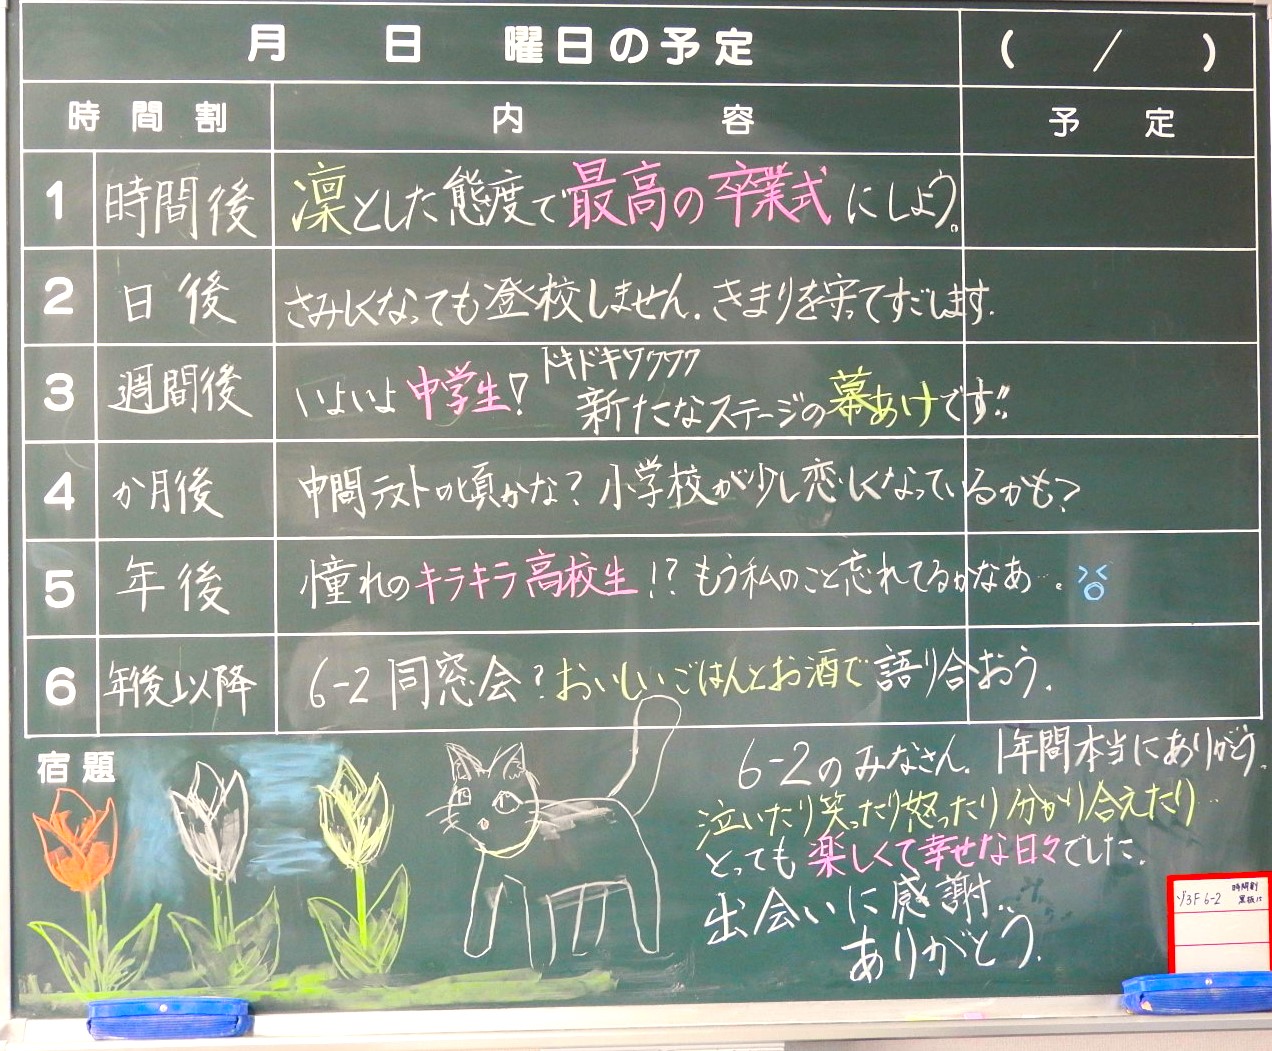 月 日 曜日の予定 ( / )
時間割 内容 予定
1 時間後 凛とした態度で最高の卒業式にしよう。
2 日後 さみしくなっても登校しません。きまりを守ってすごします。
ドキドキワクワク
3 週間後 いよいよ中学生! 新たなステージの幕あけです!!
4 か月後 中間テストの頃かな?小学校が少し恋しくなっているかも?
5 年後 憧れのキラキラ高校生!?もう私のこと忘れてるかなあ…。
6 年後以降 6-2同窓会?おいしいごはんとお酒で語り合おう。
宿題
6-2のみなさん。1年間本当にありがとう。
泣いたり笑ったり怒ったり分かり合えたり…
とっても楽しくて幸せな日々でした。
出会いに感謝…
ありがとう。
3F 6-2 時間割
黒板